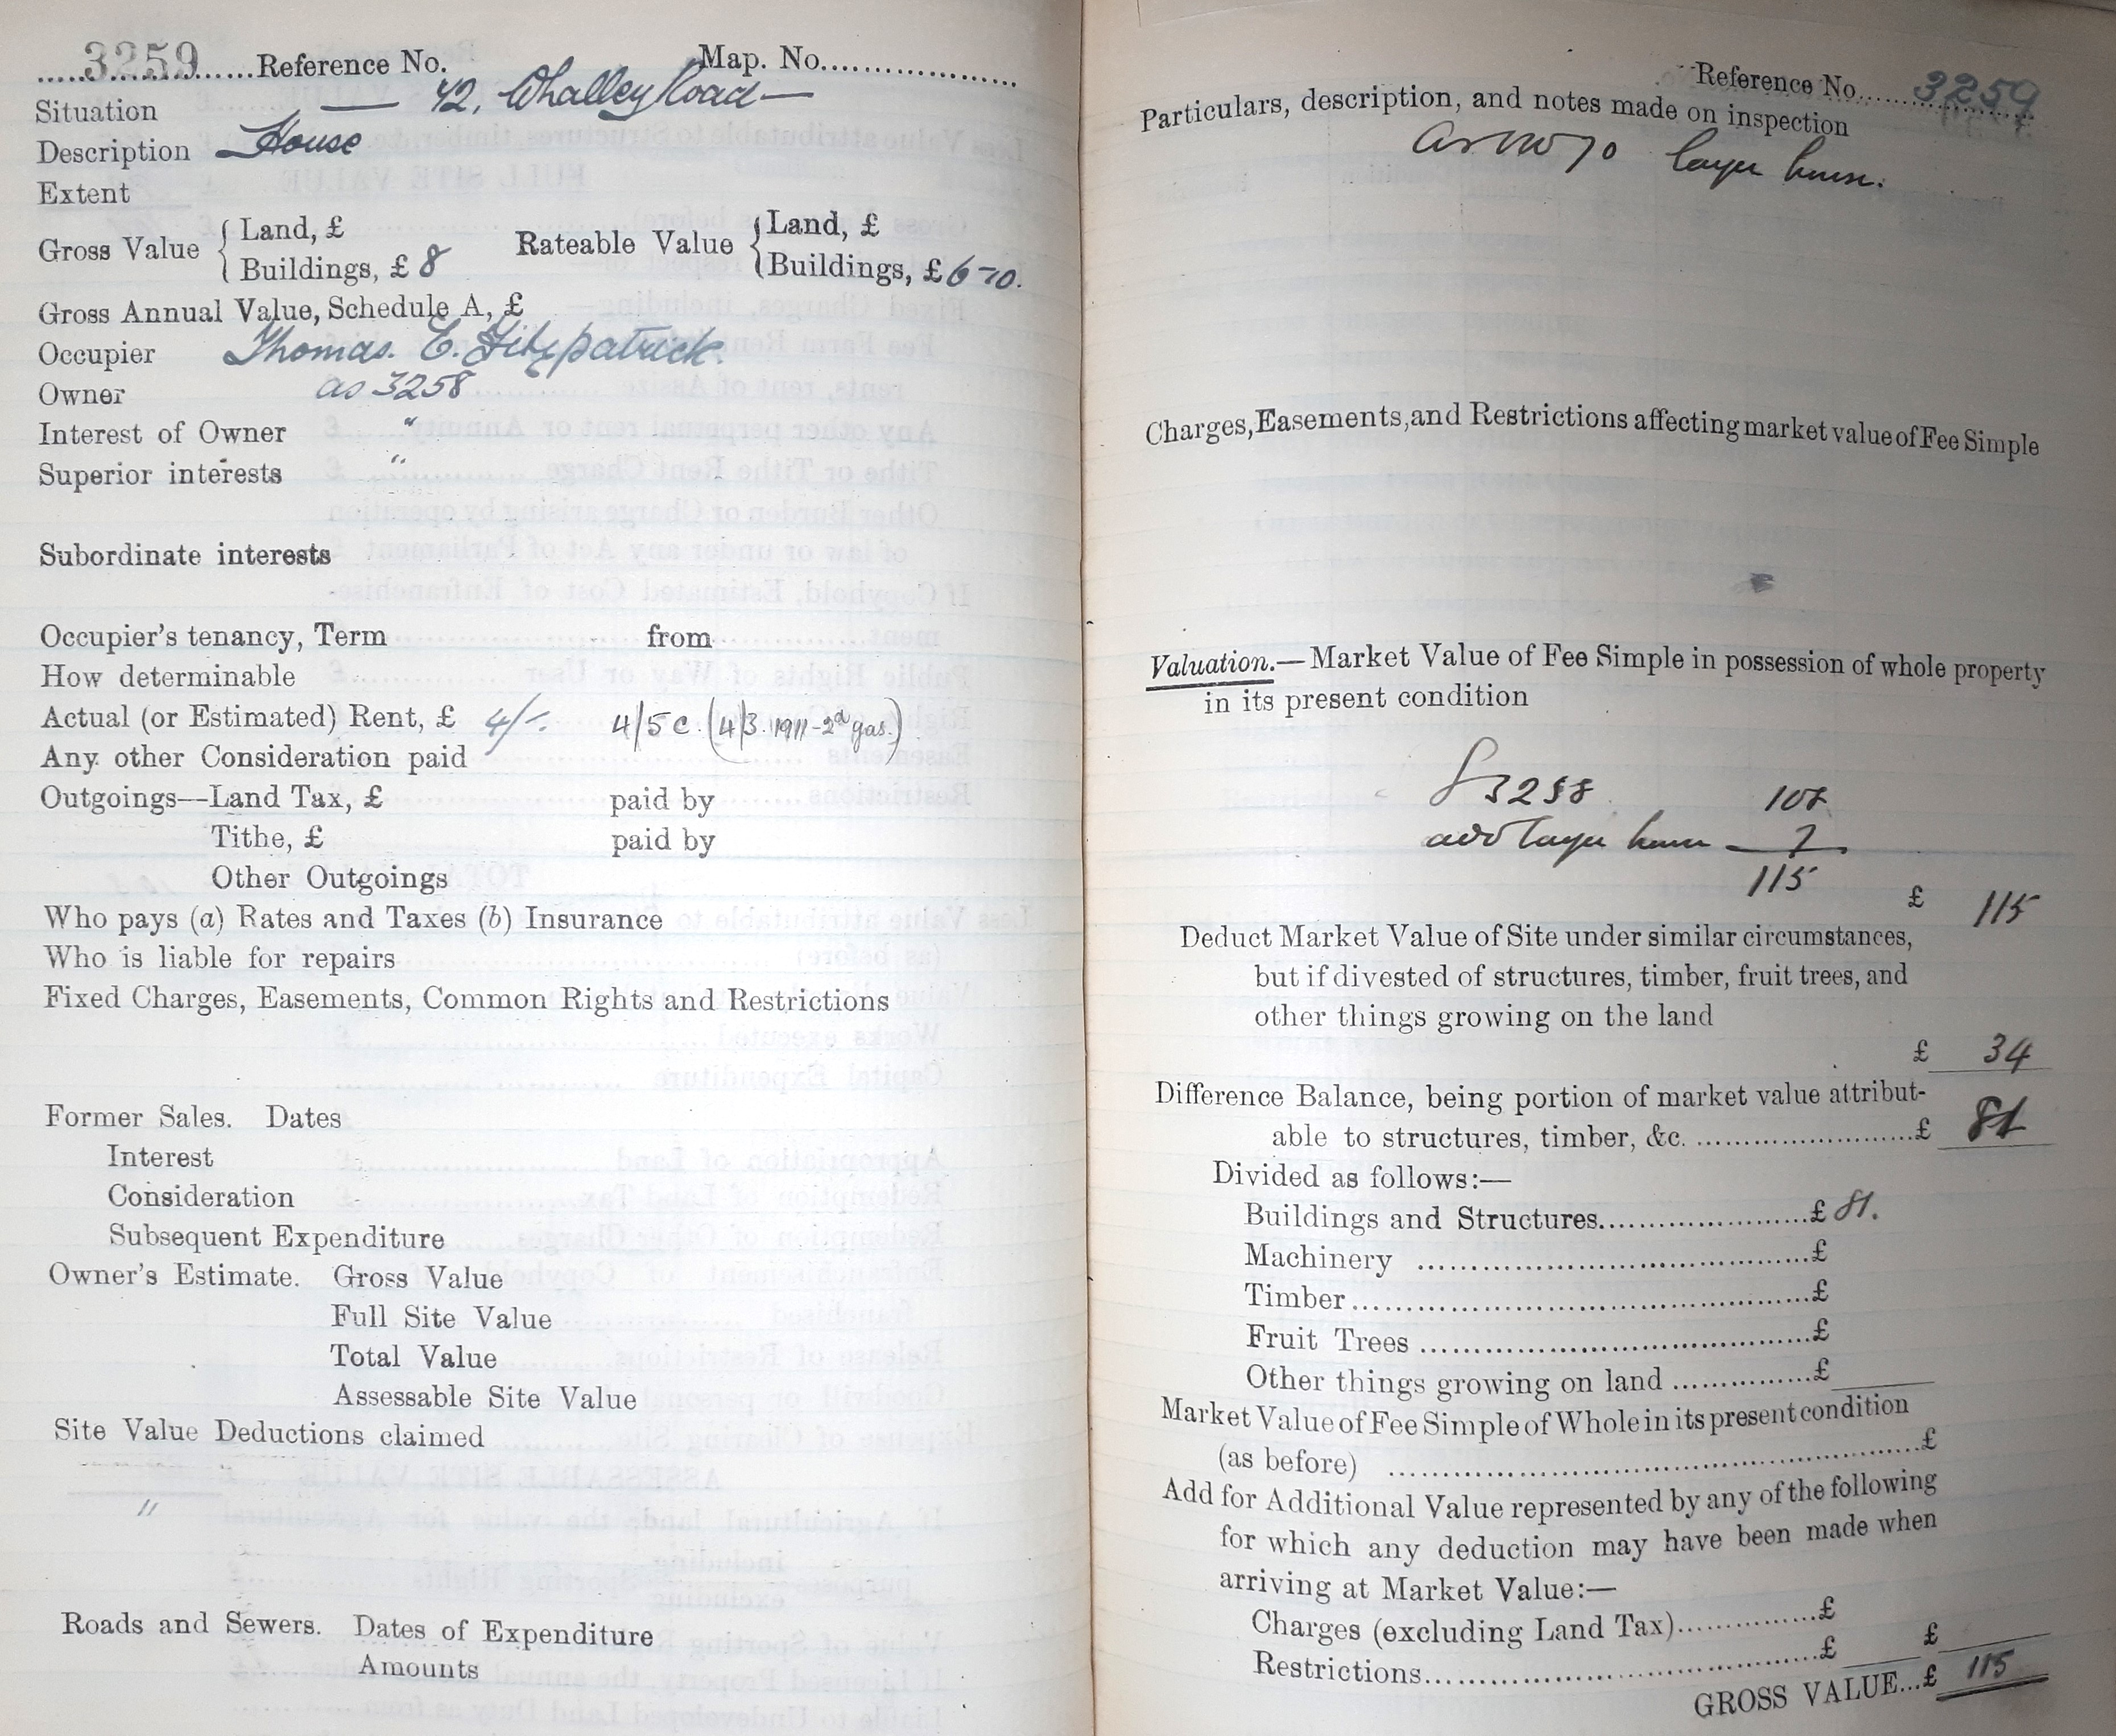 3259 Reference No. Map. No.
Situation — 42, Whalley Road —
Description House
Extent
Gross Value { Land, £
Buildings, £ 8
Rateable Value { Land, £
Buildings, £ 6-10.
Gross Annual Value, Schedule A, £
Occupier Thomas. E. Fitzpatrick.
Owner as 3258
Interest of Owner "
Superior interests "
Subordinate interests
Occupier's tenancy, Term from
How determinable
Actual (or Estimated) Rent, £ 4/-. 4/5 c. (4/3. 1911-2d gas.)
Any other Consideration paid
Outgoings—Land Tax, £ paid by
Tithe, £ paid by
Other Outgoings
Who pays (a) Rates and Taxes (b) Insurance
Who is liable for repairs
Fixed Charges, Easements, Common Rights and Restrictions
Former Sales. Dates
Interest
Consideration
Subsequent Expenditure
Owner's Estimate. Gross Value
Full Site Value
Total Value
Assessable Site Value
Site Value Deductions claimed
"
Roads and Sewers. Dates of Expenditure
Amounts
Reference No. 3259
Particulars, description, and notes made on inspection
larger house.
Charges, Easements, and Restrictions affecting market value of Fee Simple
Valuation.—Market Value of Fee Simple in possession of whole property
in its present condition
3258 108
add larger house 7
115
£ 115
Deduct Market Value of Site under similar circumstances,
but if divested of structures, timber, fruit trees, and
other things growing on the land
£ 34
Difference Balance, being portion of market value attribut-
able to structures, timber, &c. £ 81
Divided as follows:—
Buildings and Structures £ 81.
Machinery £
Timber £
Fruit Trees £
Other things growing on land £
Market Value of Fee Simple of Whole in its present condition
(as before) £
Add for Additional Value represented by any of the following
for which any deduction may have been made when
arriving at Market Value:—
Charges (excluding Land Tax) £
Restrictions £ £
GROSS VALUE...£ 115